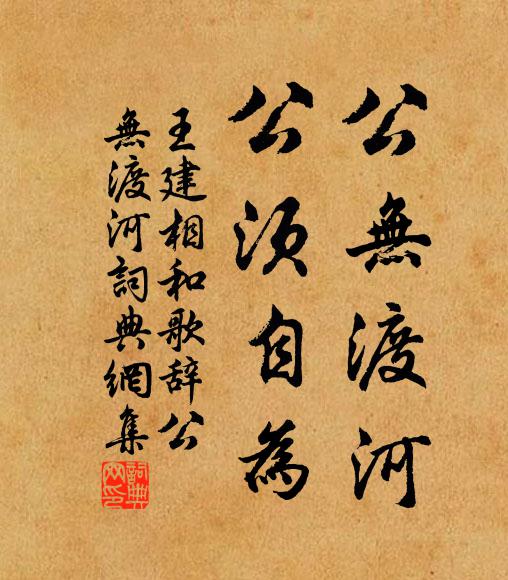 公無渡河
公須自為
王建相和歌辞公
無渡河詞典網集
詞典网印